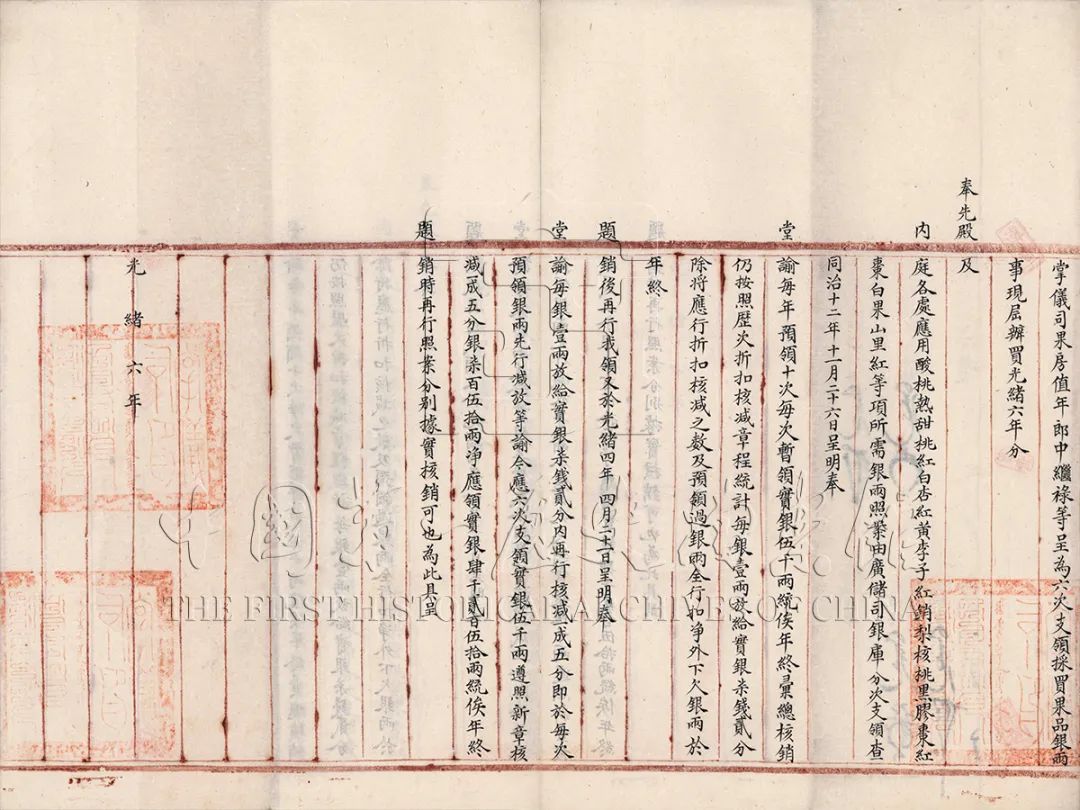 掌儀司果房值年郎中繼祿等呈為六次支領採買果品銀兩
事現屆辦買光緒六年分
奉先殿
及
內庭各處應用酸桃熱甜桃紅白杏紅黃李子紅銷梨核桃黑膠棗紅
棗白果山里紅等項所需銀兩照案由廣儲司銀庫分次支領查
同治十二年十一月二十六日呈明奉
堂諭每年預領十次每次暫領實銀伍千兩統俟年終彙總核銷
仍按照歷次折扣核減章程統計每銀壹兩放給實銀柒錢貳分
除將應行折扣核減之數及預領過銀兩全行扣淨外下欠銀兩於
年終
題銷後再行找領又於光緒四年四月二十一日呈明奉
堂諭每銀壹兩放給實銀柒錢貳分內再行核減一成五分即於每次
預領銀兩先行減放等諭今應六次支領實銀伍千兩遵照新章核
減一成五分銀柒百伍拾兩淨應領實銀肆千貳百伍拾兩統俟年終
題銷時再行照案分別據實核銷可也為此具呈
光緒六年
中國第一歷史檔案館
THE FIRST HISTORICAL ARCHIVES OF CHINA